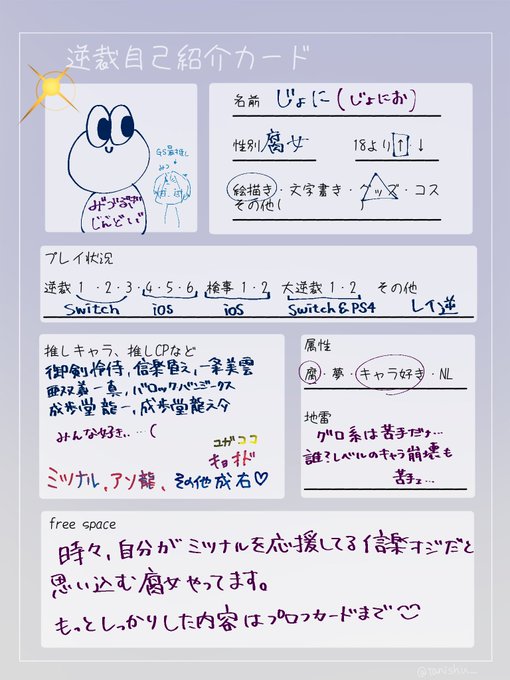 逆裁自己紹介カード
GS最推し
みつ
みつるぎ
じんどい
名前 じょに(じょにお)
性別 腐女 18より ↑・↓
絵描き・文字書き・グッズ・コス
その他(
プレイ状況
逆裁 1・2・3・4・5・6 検事 1・2 大逆裁 1・2 その他
Switch iOS iOS Switch & PS4 レイ逆
推しキャラ、推しCPなど
御剣怜侍, 信楽盾之, 一条美雲
亜双義一真, バロックバンジークス
成歩堂龍一, 成歩堂龍之介
みんな好き…(
ユガココ
キョオド
ミツナル、アソ龍、その他成右♡
属性
腐・夢・キャラ好き・NL
地雷
グロ系は苦手だな…
誰?レベルのキャラ崩壊も
苦手…
free space
時々、自分がミツナルを応援してる信楽オジだと
思い込む腐女やってます。
もっとしっかりした内容はプロフカードまで